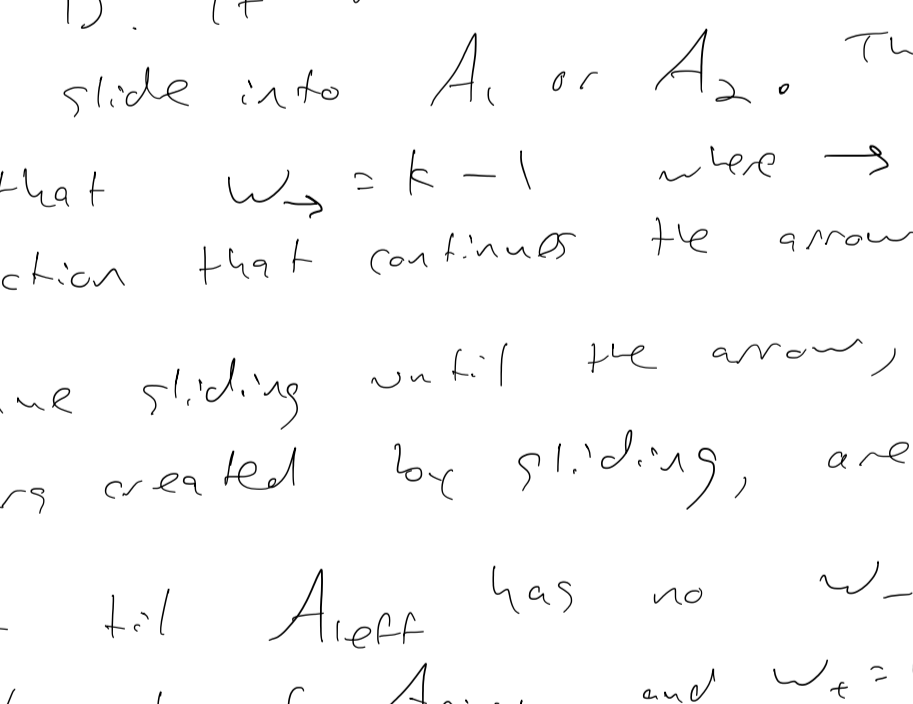 slide into A₁ or A₂. Th
that w→ = k − 1 where →
ction that continues the arrow
ue sliding until the arrow,
rs created by sliding, are
til A₁eff has no w₋
and w₊ =